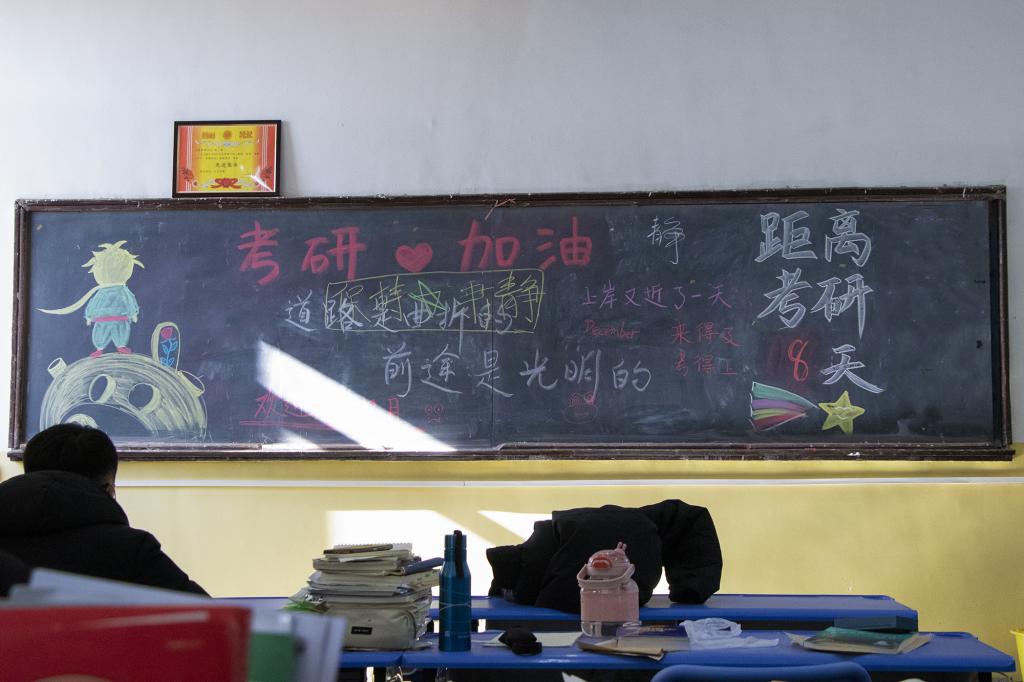 考研 加油
静
寂静
肃静
道路是曲折的
前途是光明的
上岸又近了一天
December
来得及
考得上
距离
考研
8
天
先进集体